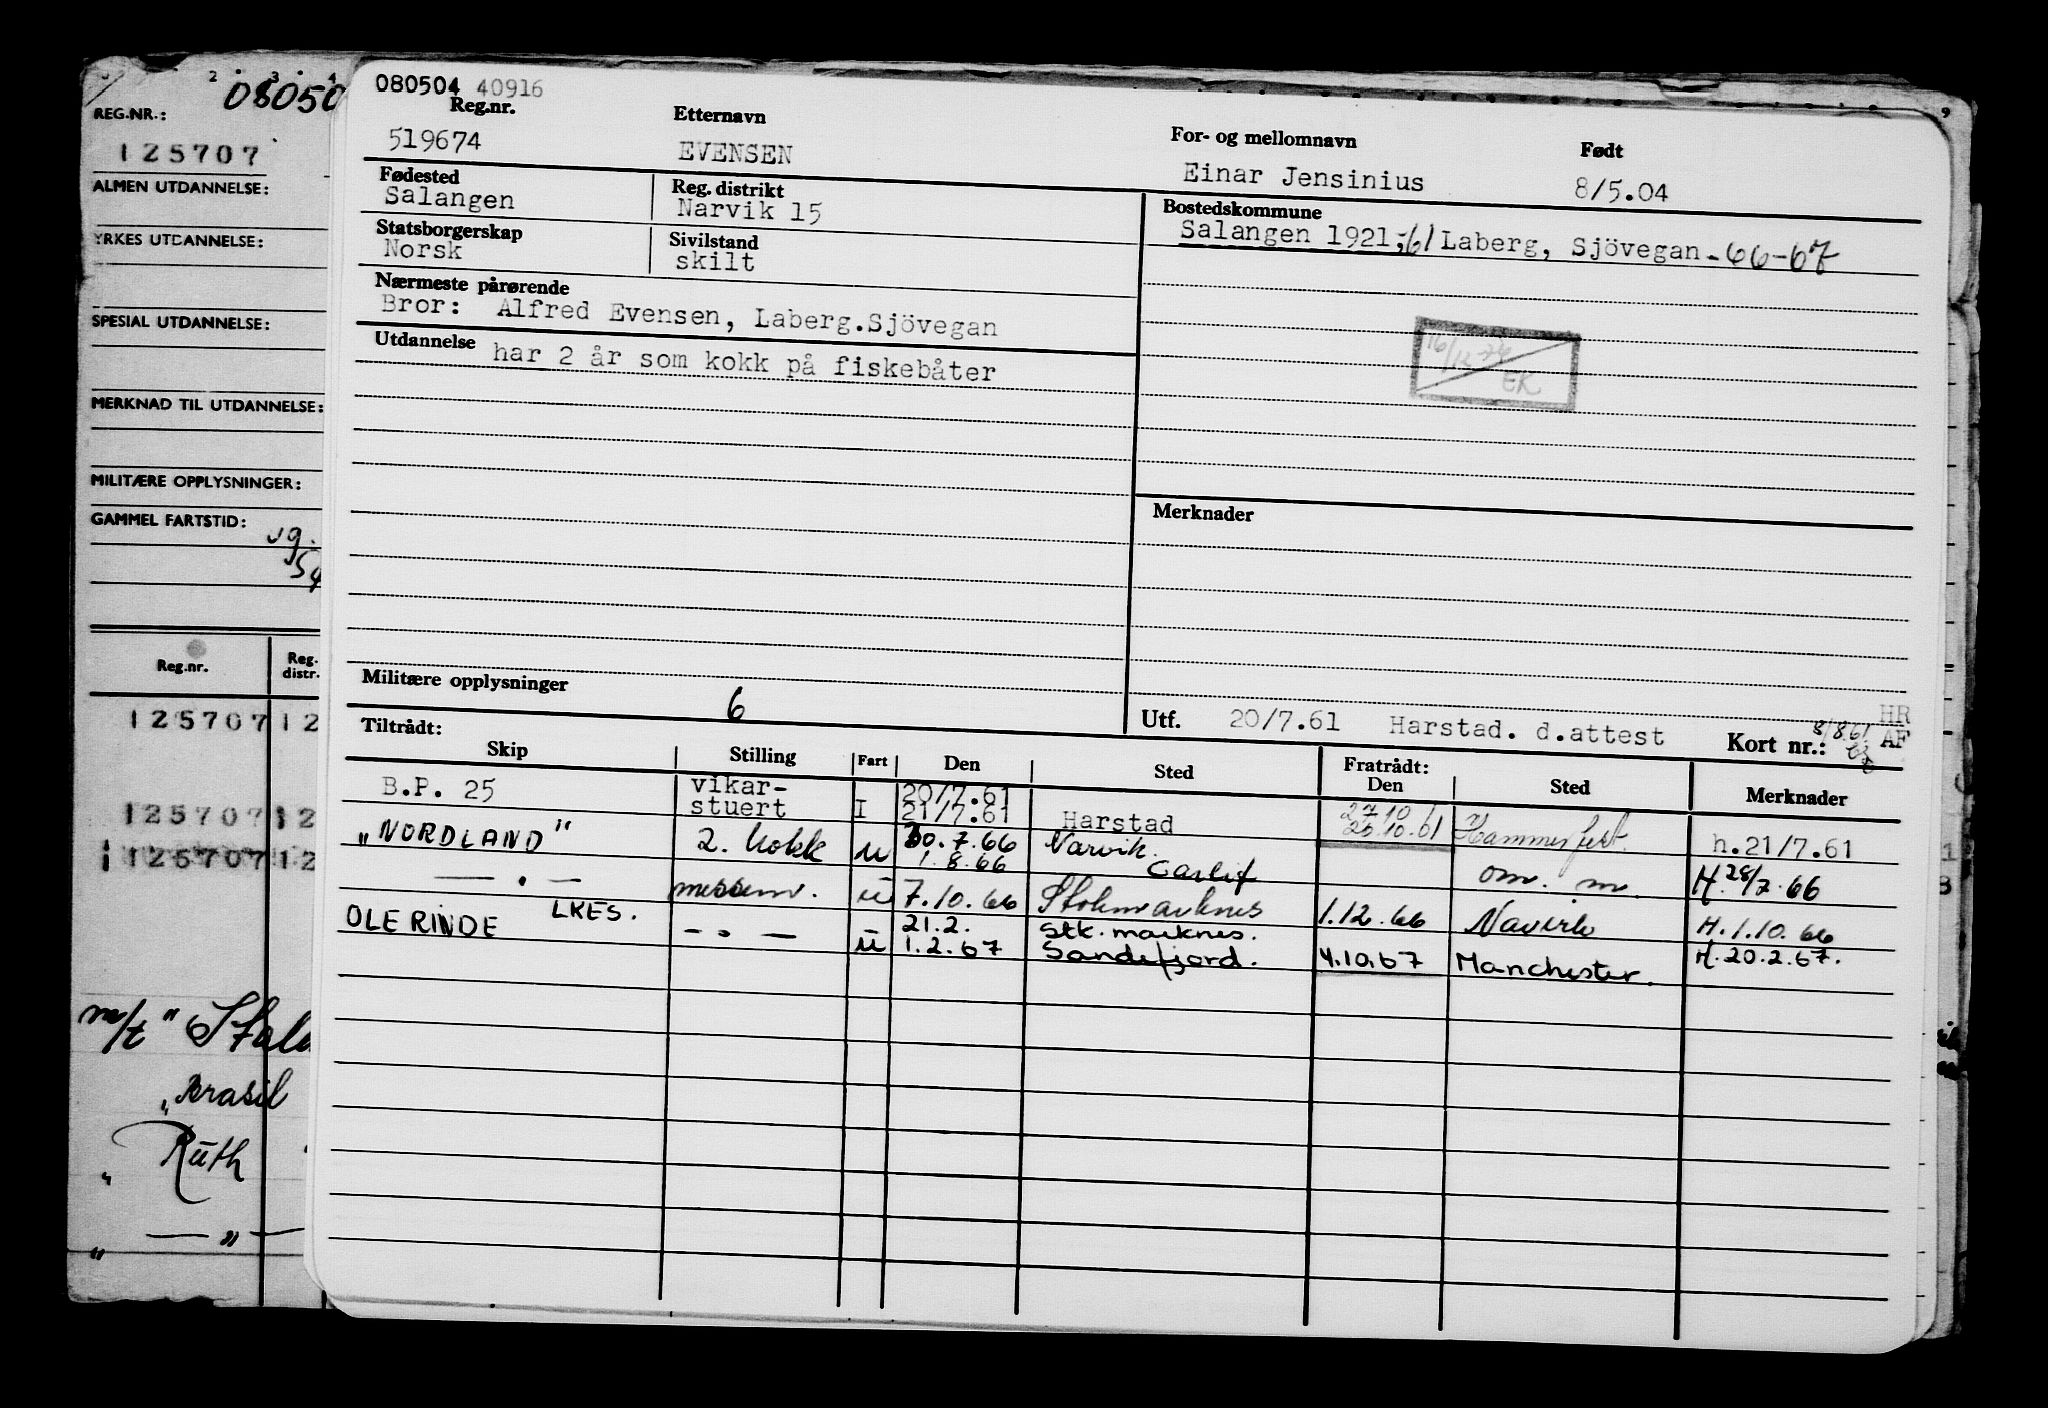 2 3 4
08050
REG.NR.:
125707
ALMEN UTDANNELSE:
YRKES UTDANNELSE:
SPESIAL UTDANNELSE:
MERKNAD TIL UTDANNELSE:
MILITÆRE OPPLYSNINGER:
GAMMEL FARTSTID:
54
Reg.nr. Reg. distr.
125707 12
125707 12
125707 12
m/t "
„Brasil
„ Ruth
„ — „ —
9
080504 40916
Reg.nr. Etternavn For- og mellomnavn Født
519674 EVENSEN Einar Jensinius 8/5.04
Fødested Reg. distrikt Bostedskommune
Salangen Narvik 15 Salangen 1921,-61 Laberg, Sjövegan-66-67
Statsborgerskap Sivilstand
Norsk skilt
Nærmeste pårørende
Bror: Alfred Evensen, Laberg.Sjövegan
Utdannelse har 2 år som kokk på fiskebåter
16/12 74
EK
Merknader
Militære opplysninger 6
Utf. 20/7.61 Harstad. d.attest Kort nr.: 8/8.61 HR AF
Tiltrådt: Fratrådt:
Skip Stilling Fart Den Sted Den Sted Merknader
B.P. 25 vikar- 20/7.61 27.10
stuert I 21/7.61 Harstad 25.10.61 Hammerfest. h.21/7.61
„NORDLAND" 2. kokk u 30.7.66 Narvik.
1.8.66 om. m. H.28/7.66
— . — messem. u 7.10.66 Stokmarknes 1.12.66 Navirk H.1.10.66
OLE RINDE LKES. — . — u 21.2. Stk.marknes.
1.2.67 Sandefjord. 4.10.67 Manchester. H.20.2.67.